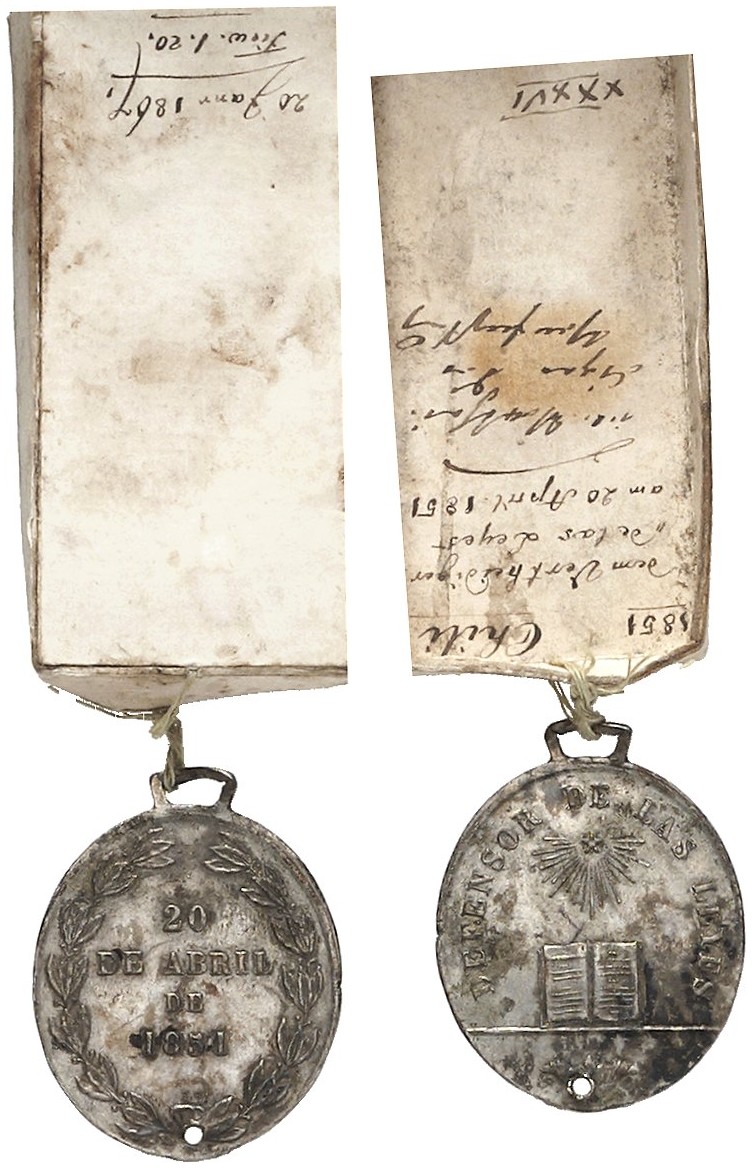 20 Janr 1867,
1.20,
20
DE ABRIL
DE
1851
XXXVI
Chili
1851
dem Vertheidiger
„de las Leyes"
am 20 April 1851
DEFENSOR DE LAS LEYES